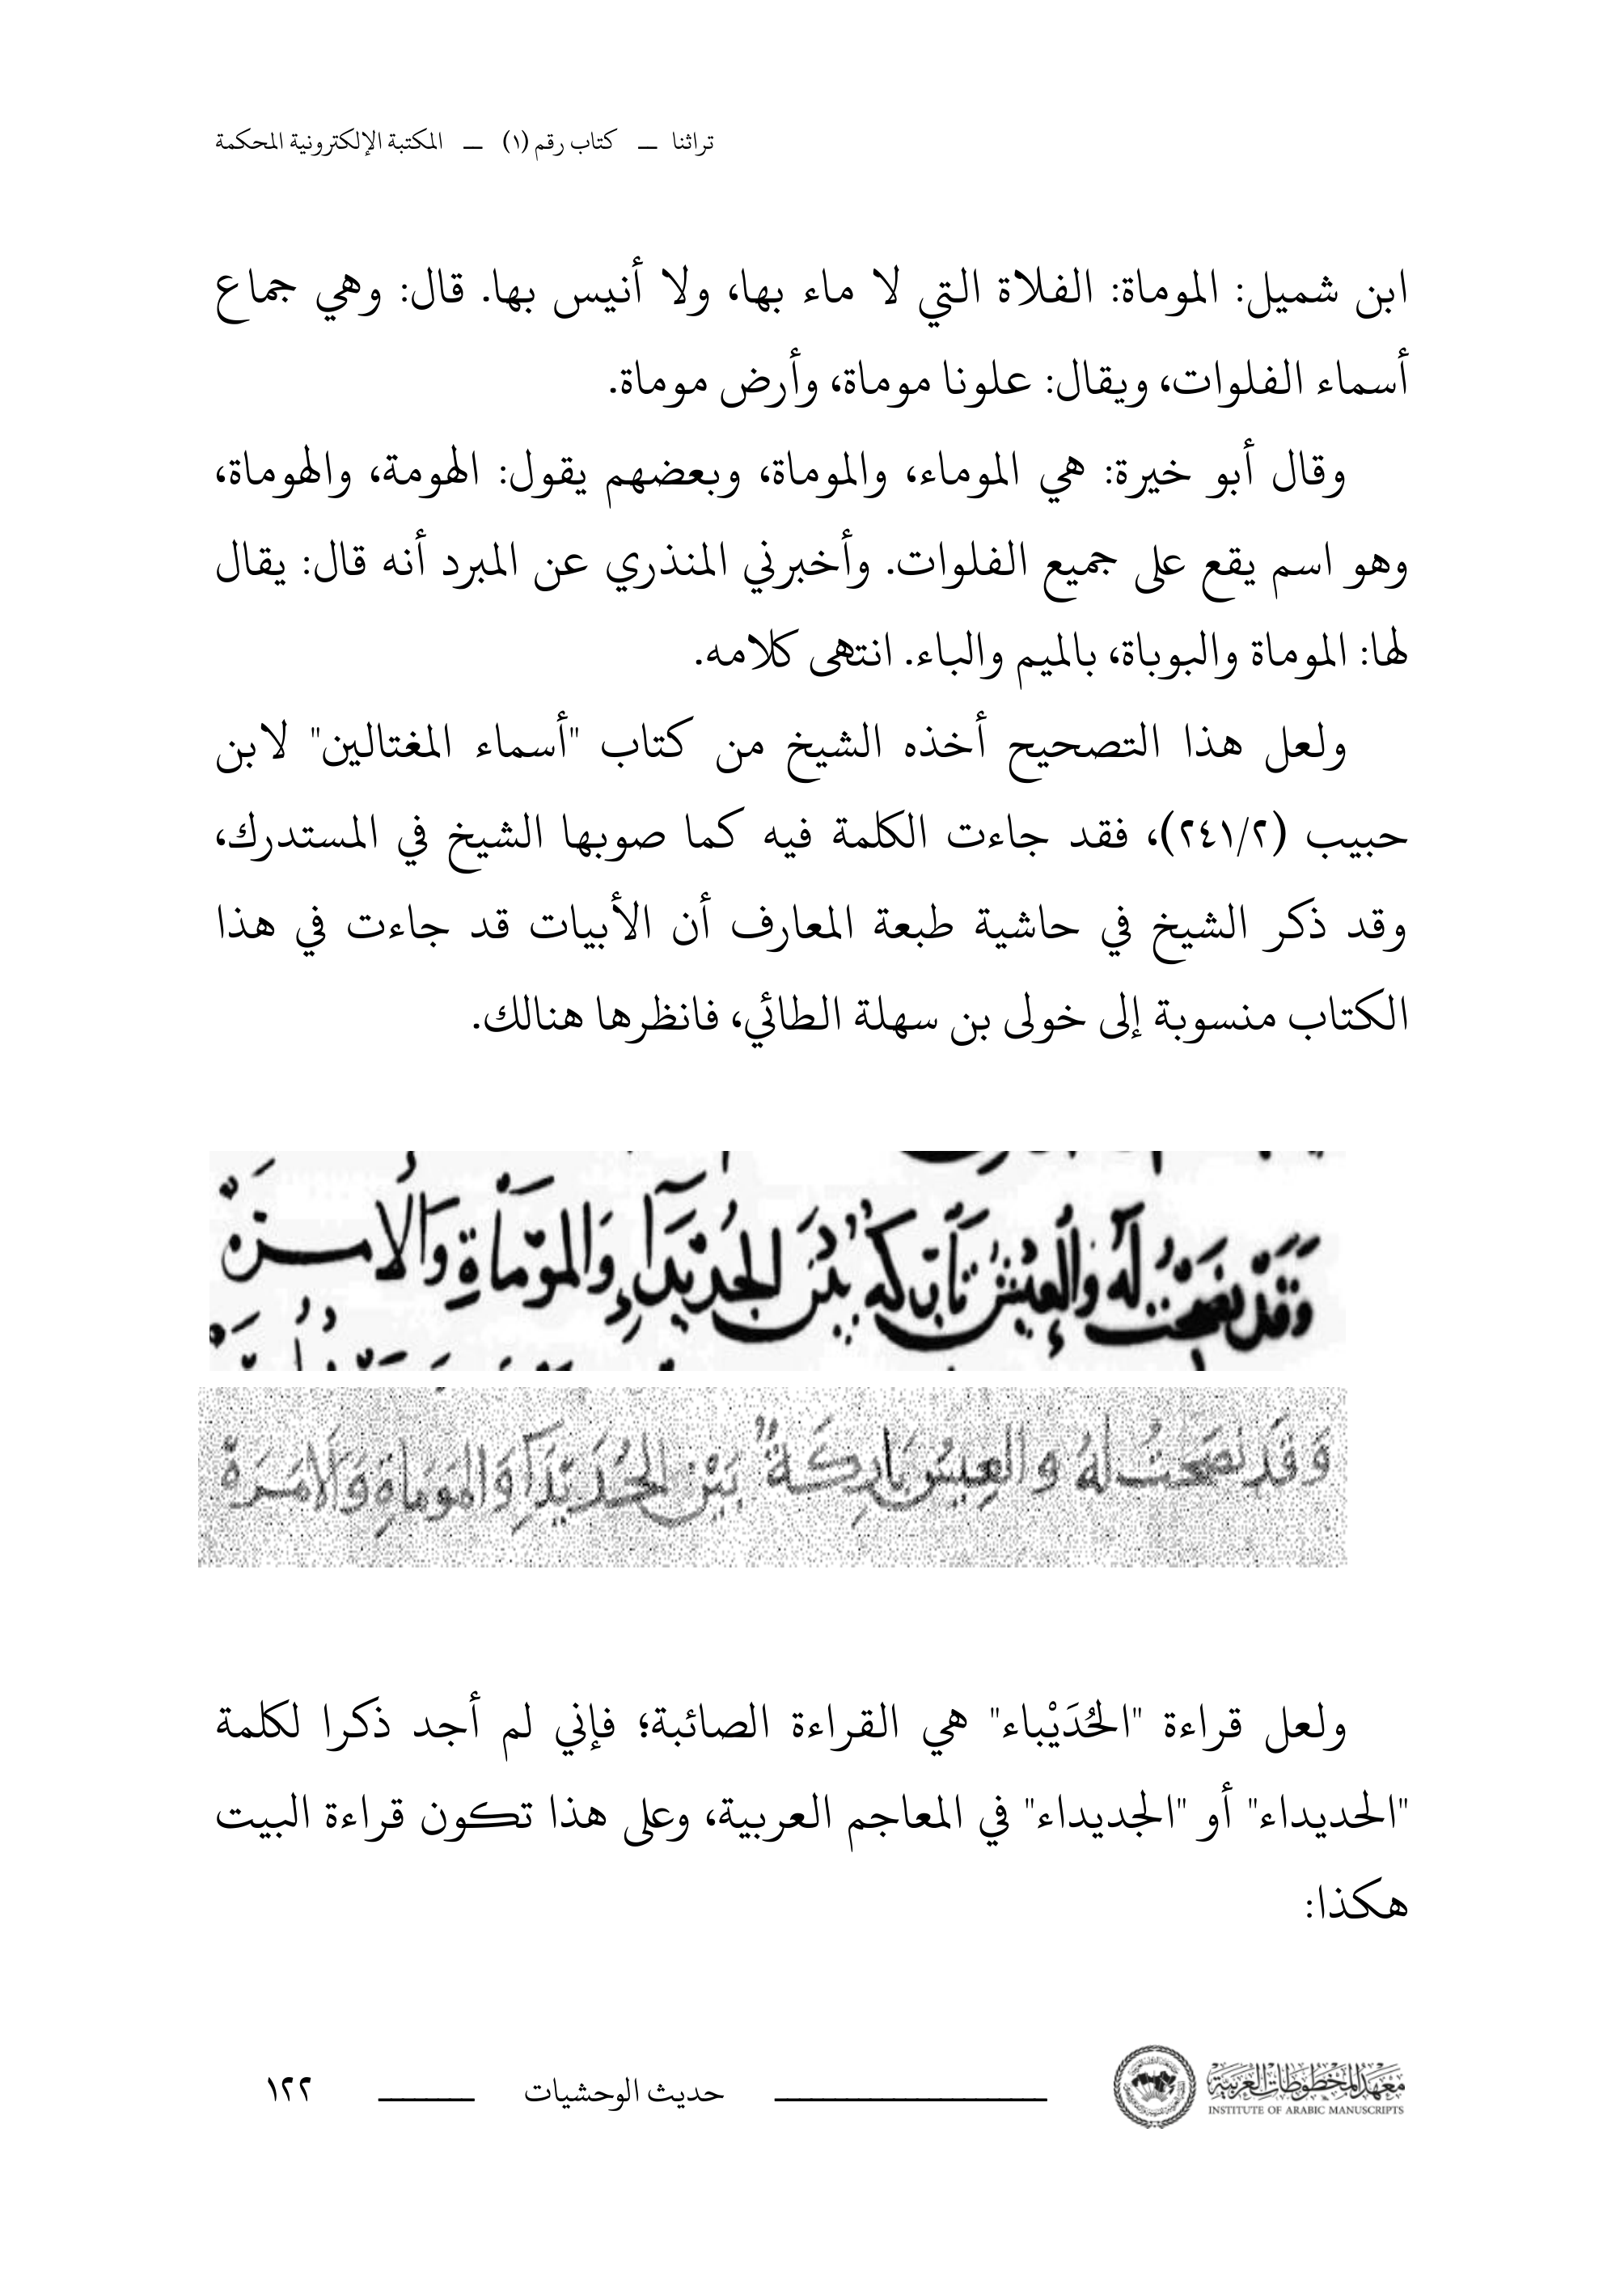 تراثنا — كتاب رقم (١) — المكتبة الإلكترونية المحكمة
ابن شميل: الموماة: الفلاة التي لا ماء بها، ولا أنيس بها. قال: وهي جماع
أسماء الفلوات، ويقال: علونا موماة، وأرض موماة.
وقال أبو خيرة: هي الموماء، والموماة، وبعضهم يقول: الهومة، والهوماة،
وهو اسم يقع على جميع الفلوات. وأخبرني المنذري عن المبرد أنه قال: يقال
لها: الموماة والبوباة، بالميم والباء. انتهى كلامه.
ولعل هذا التصحيح أخذه الشيخ من كتاب "أسماء المغتالين" لابن
حبيب (٢٤١/٢)، فقد جاءت الكلمة فيه كما صوبها الشيخ في المستدرك،
وقد ذكر الشيخ في حاشية طبعة المعارف أن الأبيات قد جاءت في هذا
الكتاب منسوبة إلى خولى بن سهلة الطائي، فانظرها هنالك.
وقد نصحت له والعيس باركه بين الجديداء والموماة والامره
وقد نصحت له والعيس باركة بين الحديدا والموماة والامرة
ولعل قراءة "الحُدَيْباء" هي القراءة الصائبة؛ فإني لم أجد ذكرا لكلمة
"الحديداء" أو "الجديداء" في المعاجم العربية، وعلى هذا تكون قراءة البيت
هكذا:
معهد المخطوطات العربية
INSTITUTE OF ARABIC MANUSCRIPTS
حديث الوحشيات
١٢٢